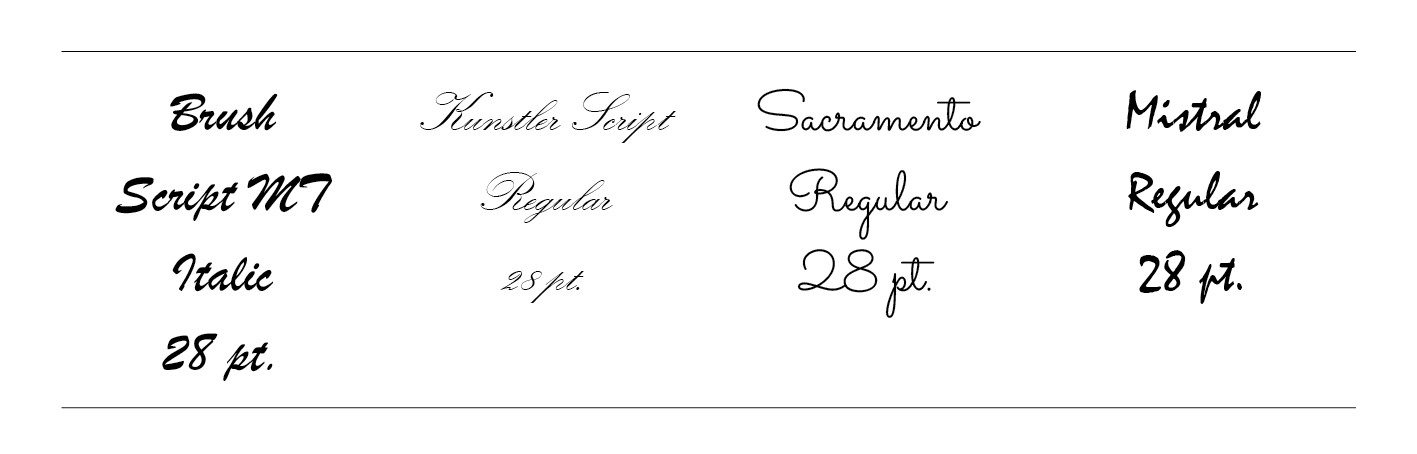 Brush
Script MT
Italic
28 pt.
Kunstler Script
Regular
28 pt.
Sacramento
Regular
28 pt.
Mistral
Regular
28 pt.